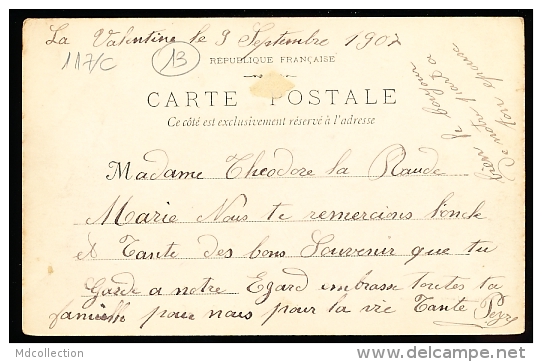 La Valentine le 9 Septembre 1907
117/C
13
RÉPUBLIQUE FRANÇAISE
CARTE POSTALE
Ce côté est exclusivement réservé à l'adresse
Madame Theodore la Raude
Marie Nous te remercions l'oncle
et Tante des bons Souvenir que tu
Garde a notre Egard embrasse toutes ta
famille pour nous pour la vie Tante Peyre
bien le bonjour
de notre part a
ton epoux
Mdcollection
delcampe.net